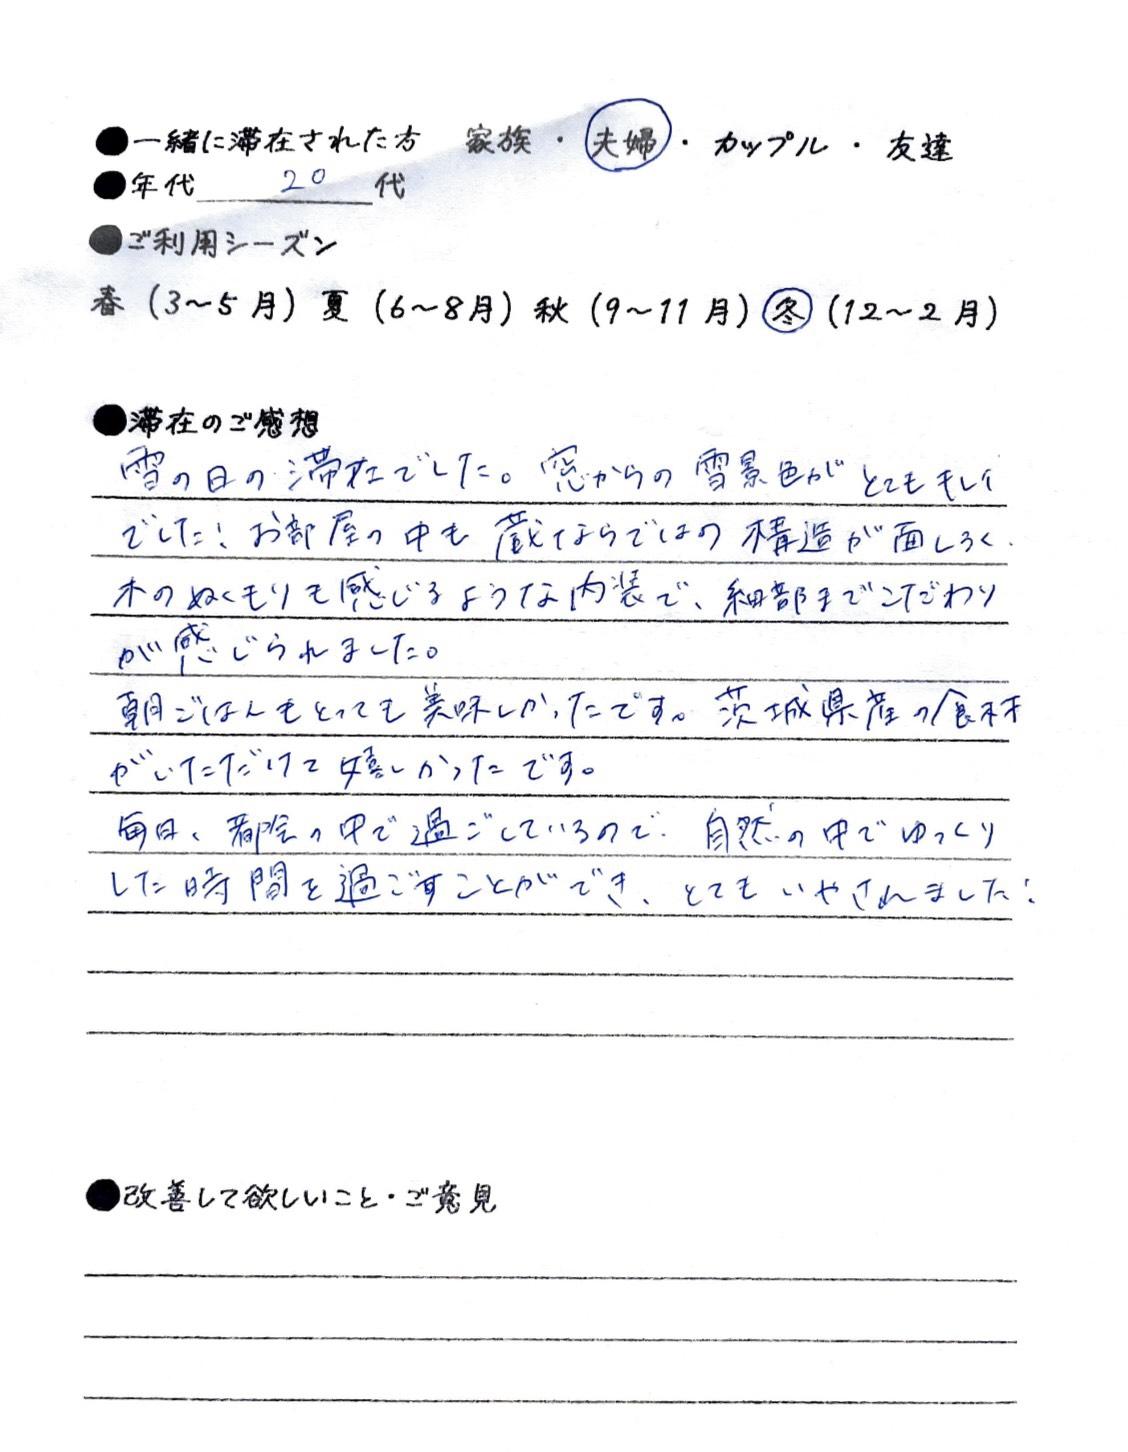 ●一緒に滞在された方　家族・夫婦・カップル・友達
●年代 20 代
●ご利用シーズン
春(3～5月)夏(6～8月)秋(9～11月)冬(12～2月)
●滞在のご感想
雪の日の滞在でした。窓からの雪景色がとてもキレイ
でした!お部屋の中も蔵ならではの構造が面しろく、
木のぬくもりも感じるような内装で、細部までこだわり
が感じられました。
朝ごはんもとっても美味しかったです。茨城県産の食材
がいただけて嬉しかったです。
毎日、都会の中で過ごしているので、自然の中でゆっくり
した時間を過ごすことができ、とてもいやされました!
●改善して欲しいこと・ご意見